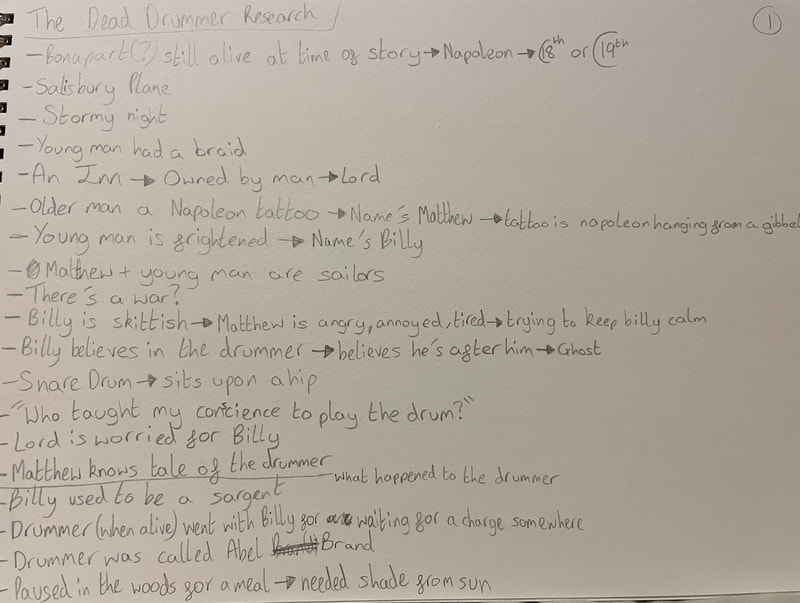 The Dead Drummer Research
①
- Bonapart(?) still alive at time of story → Napoleon → 18th or 19th
- Salisbury Plane
- Stormy night
- Young man had a braid
- An Inn → Owned by man → Lord
- Older man a Napoleon tattoo → Name's Matthew → tattoo is napoleon hanging from a gibbet
- Young man is frightened → Name's Billy
- Matthew + young man are sailors
- There's a war?
- Billy is skittish → Matthew is angry, annoyed, tired → trying to keep billy calm
- Billy believes in the drummer → believes he's after him → Ghost
- Snare Drum → sits upon a hip
- "Who taught my concience to play the drum?"
- Lord is worried for Billy
- Matthew knows tale of the drummer what happened to the drummer
- Billy used to be a sargent
- Drummer (when alive) went with Billy for waiting for a charge somewhere
- Drummer was called Abel Brand
- Paused in the woods for a meal → needed shade from sun